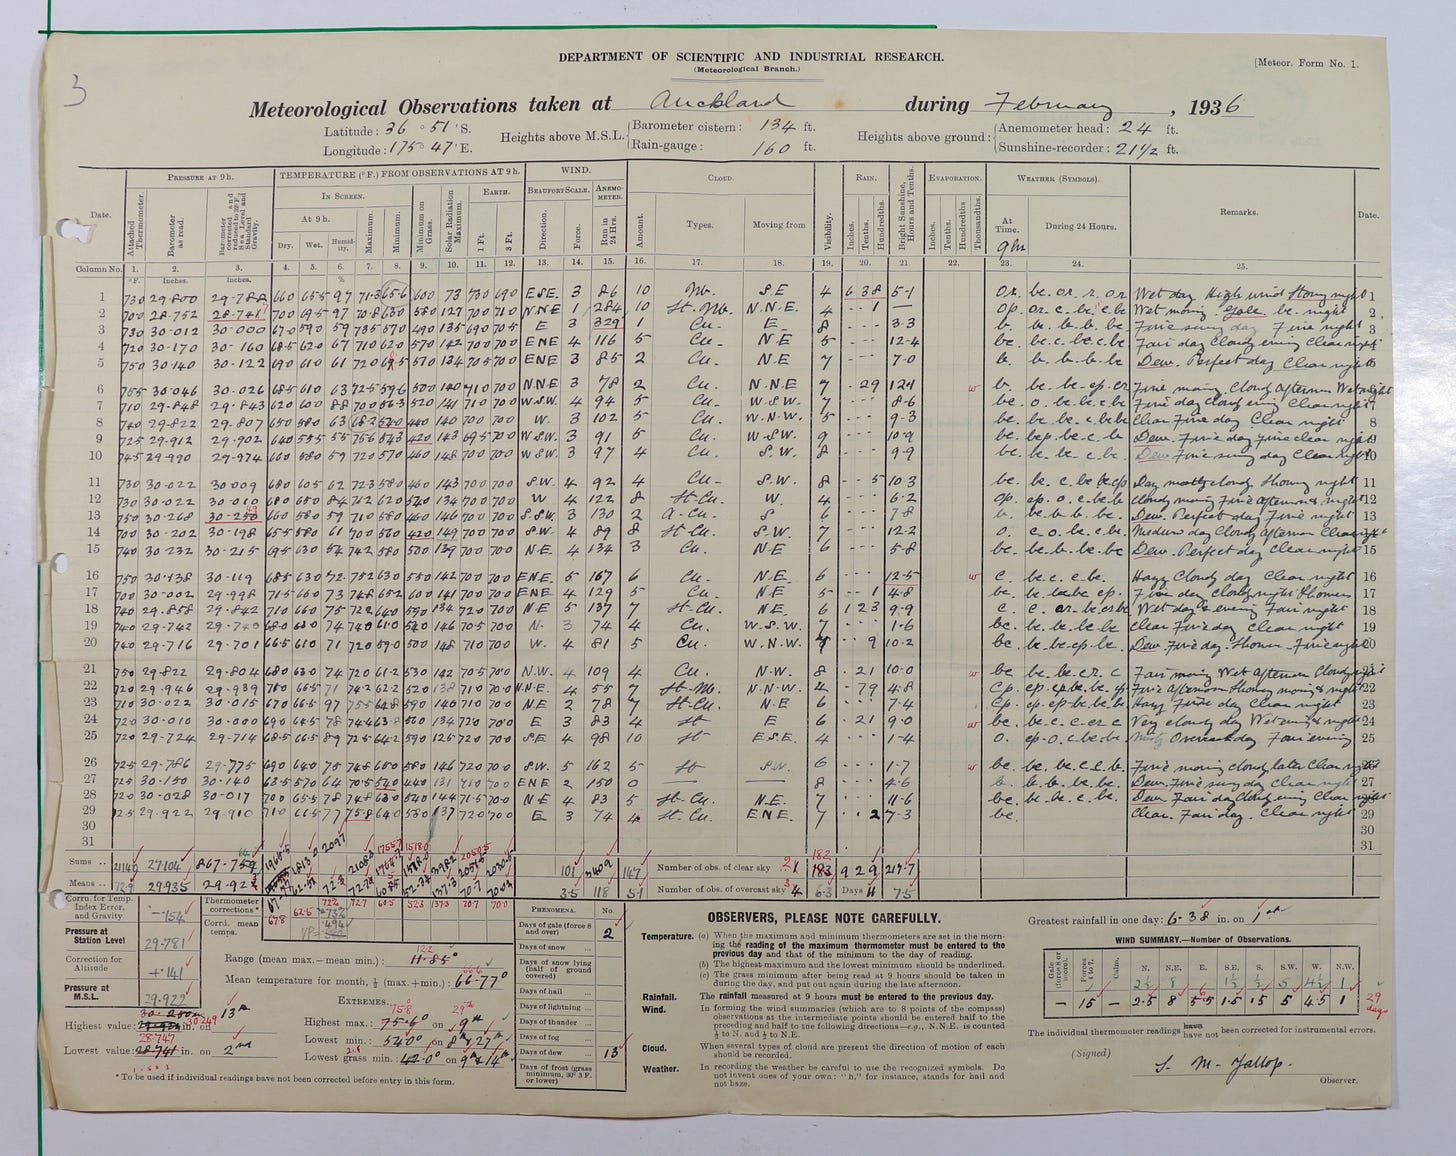 3
DEPARTMENT OF SCIENTIFIC AND INDUSTRIAL RESEARCH.
(Meteorological Branch.)
[Meteor. Form No. 1.
Meteorological Observations taken at Auckland during February, 1936
Latitude: 36° 51' S.
Longitude: 175° 47' E.
Heights above M.S.L. Barometer cistern: 134 ft.
Rain-gauge: 160 ft.
Heights above ground: Anemometer head: 24 ft.
Sunshine-recorder: 21½ ft.
Date. PRESSURE AT 9h. TEMPERATURE (°F.) FROM OBSERVATIONS AT 9h. WIND. CLOUD. RAIN. EVAPORATION. WEATHER (SYMBOLS). Remarks. Date.
IN SCREEN. EARTH. BEAUFORT SCALE. ANEMOMETER.
Attached Thermometer. Barometer as read. Barometer corrected and reduced to 32°F., Sea Level and Standard Gravity. At 9h. Dry. Wet. Humidity. Maximum. Minimum. Minimum on Grass. Solar Radiation Maximum. 1 Ft. 3 Ft. Direction. Force. Run in 24 Hrs. Amount. Types. Moving from Visibility. Inches. Tenths. Hundredths. Bright Sunshine, Hours and Tenths. Inches. Tenths. Hundredths. Thousandths. At Time. 9hr During 24 Hours.
Column No. 1. 2. 3. 4. 5. 6. 7. 8. 9. 10. 11. 12. 13. 14. 15. 16. 17. 18. 19. 20. 21. 22. 23. 24. 25.
°F. Inches. Inches. %
1 730 29.800 29.788 660 65.5 97 71.3 65.6 600 73 730 690 ESE. 3 86 10 Nb. S E 4 6 38 5.1 or. bc. or. r. or Wet day High wind Stormy night 1
2 700 28.752 28.741 700 69.5 97 70.8 630 580 127 700 710 N.N.E 1 284 10 St.Nb. N.N.E. 4 - - 1 — op. Wet morning. Gale. bc. night 2
3 730 30.012 30.000 670 590 59 735 570 490 135 690 70.5 E 3 329 1 Cu. E 8 - - - 3.3 b. b. b. b. bc Fine sunny day Fine night 3
4 720 30.170 30.160 68.5 620 67 710 620 570 142 700 700 ENE 4 116 5 Cu. N E 5 - - - 12.4 bc. bc. c. bc. c bc Fair day Cloudy evening Clear night 4
5 750 30.140 30.122 690 610 61 720 570 134 705 700 ENE 3 85 2 Cu. N.E 7 - - - 7.0 b. b. b. b. b. bc Dew. Perfect day Clear night 5
6 755 30.046 30.026 68.5 610 63 72.5 59.6 500 140 710 700 N.NE 3 78 2 Cu. N.N.E 7 . 29 12.1 w b. bc. bc. cp. cr Fine morning Cloudy afternoon Wet night
7 710 29.848 29.843 620 600 88 700 56.3 520 141 710 700 W.S.W. 4 94 5 Cu. W.S.W. 7 - - - 8.6 bc. o. bc. bc. c bc Fine day cloudy evening Clear night 7
8 740 29.822 29.807 650 580 63 68.2 540 440 140 700 700 W. 3 102 5 Cu. W.N.W. 7 - - - 9.3 bc. bc. bc. c. bc bc Clear Fine day Clear night 8
9 725 29.912 29.902 640 555 55 756 543 420 143 69.5 700 W SW. 3 91 5 Cu. W.SW. 9 - - - 10.9 bc. bcp. bc. c. bc Dew. Fine day fine clear night 9
10 745 29.990 29.974 660 580 59 720 570 460 148 700 700 W SW. 3 97 4 Cu. S.W. 8 - - - 9.9 bc. bc. bc. c. bc. Dew Fine sunny day Clear night 10
11 730 30.022 30.009 680 605 62 72.3 580 460 143 700 700 S.W. 4 92 4 Cu. S.W. 8 - - 5 10.3 bc. bc. c. bc bc cp Day mostly cloudy Showery night 11
12 730 30.022 30.010 680 650 84 742 620 520 134 700 700 W 4 122 8 St-Cu. W. 4 - - - 6.2 op. cp. o. c. bc. b Cloudy morning Fine afternoon & night 12
13 750 30.268 30.250 660 580 59 710 580 460 146 700 700 S.SW. 3 130 2 A-Cu. S 6 - - - 7.8 b. bc. b. b. bc. Dew. Perfect day Fine night 13
14 700 30.202 30.198 655 580 61 700 560 420 149 700 700 S.W. 4 89 8 St-Cu. S.W. 7 - - - 12.2 o. c. o. bc. c. bc Medium day Cloudy afternoon Clear night
15 740 30.232 30.215 695 630 54 742 580 500 139 700 700 N.E. 4 134 3 Cu. N.E 6 - - - 5.8 bc. bc. b. bc bc Dew. Perfect day Clear night 15
16 750 30.138 30.119 68.5 630 72. 752 630 550 142 700 700 ENE. 5 167 6 Cu. N.E. 6 - - - 12.5 w c. bc. c. c bc. Hazy Cloudy day Clear night 16
17 700 30.002 29.998 71.5 660 73 748 652 600 141 700 700 ENE 4 129 5 Cu. NE 5 - - 1 4.8 bc. bc. bc bc cp Fine day Cloudy night Showers 17
18 740 29.858 29.842 710 660 75 722 640 590 134 720 700 N.E 5 137 7 St-Cu. N.E. 6 1 23 9.9 c. c. or. bc. cr bc Wet day & evening Fair night 18
19 740 29.742 680 630 74 740 610 540 146 70.5 700 N. 3 74 4 Cu. W.S.W. 7 - - - 1.6 bc. bc. bc. bc bc Clear Fine day Clear night 19
20 740 29.716 29.701 66.5 610 71 720 590 500 148 710 700 W. 4 81 5 Cu. W.N.W. 7 9 10.2 bc. bc. bc. cp. bc Dew. Fine day. Shower. Fine night
21 750 29.822 29.804 680 630 74 720 61.2 530 142 705 700 N.W. 4 109 4 Cu. N.W. 8 . 21 10.0 w bc bc. bc. cr. c Fair morning Wet afternoon Cloudy
22 720 29.946 29.939 66.5 71 74.2 62.2 520 138 710 700 N.N.E. 4 55 7 St-Nb. N.N.W. 4 - 79 4.8 cp. cp. cp. bc. bc. cp Fine afternoon Showery morning & night 22
23 710 30.022 30.015 670 66.5 97 755 648 590 140 710 700 N.E 2 78 7 St-Cu. N.E. 6 - - - 7.4 cp. cp. cp bc bc bc Hazy Fine day Clear night 23
24 720 30.010 30.000 690 64.5 78 744 638 560 134 720 700 E 3 83 4 St E 6 . 21 9.0 w bc bc. c. c. cr c Very cloudy day Wet evening & night 24
25 720 29.724 29.714 68.5 66.5 89 72.5 64.2 590 125 720 700 S.E 4 98 10 St E.S.E. 4 - - - 1.4 o. cp. o. c bc bc Misty Overcast day Fair evening 25
26 725 29.786 29.775 690 640 75 748 650 580 146 720 700 S.W. 5 162 5 St S.W. 6 - - - 1.7 w bc. bc. bc. c. c. b. Fine morning cloudy later Clear night
27 725 30.150 30.140 63.5 570 64 70.5 540 440 131 710 700 ENE 2 150 0 — — 8 - - - 4.6 b. b. b. b. bc. bc. Dew. Fine sunny day Clear night 27
28 720 30.028 30.017 700 65.5 78 748 630 540 144 71.5 700 N E 4 83 5 St-Cu. N.E. 7 - - - 11.6 bc. bc. bc. c. bc. Dew. Fair day Cloudy evening Clear night
29 725 29.922 29.910 710 66.5 77 75.8 640 530 137 720 700 E 3 74 4 St. Cu. E.N.E. 7 - - 2 7.3 bc. Clear. Fair day. Clear night 29
30 30
31 31
Sums .. 27.104 101 3409 147 Number of obs. of clear sky 1 182 183 9 29 217.7
Means .. 72.9 29.935 3.5 118 5.1 Number of obs. of overcast sky 4 6.3 Days 11 7.5
Corrn. for Temp. Index Error, and Gravity -.154
Thermometer corrections*
Corrd. mean temps. 67.8 62.5 73% 72.7 60.5 52.3 137.3 70.7 70.0
Pressure at Station Level 29.781
Correction for Altitude +.141
Pressure at M.S.L. 29.922
Range (mean max.–mean min.): 12.2 11.85°
Mean temperature for month, ½ (max.+min.): 66.6 66.77°
EXTREMES.
Highest value: 30.249 in. on 13th
Lowest value: 28.747 28.741 in. on 2nd
Highest max.: 75.8 75.6° on 29th 9th
Lowest min.: 54.0° on 8th & 27th
Lowest grass min.: 42.0° on 9th & 14th
* To be used if individual readings have not been corrected before entry in this form.
PHENOMENA. No.
Days of gale (force 8 and over) 2
Days of snow ...
Days of snow lying (half of ground covered)
Days of hail
Days of lightning ...
Days of thunder ...
Days of fog
Days of dew ... 13
Days of frost (grass minimum, 30°.3 F. or lower)
OBSERVERS, PLEASE NOTE CAREFULLY.
Temperature. (a) When the maximum and minimum thermometers are set in the morning the reading of the maximum thermometer must be entered to the previous day and that of the minimum to the day of reading.
(b) The highest maximum and the lowest minimum should be underlined.
(c) The grass minimum after being read at 9 hours should be taken in during the day, and put out again during the late afternoon.
Rainfall. The rainfall measured at 9 hours must be entered to the previous day.
Wind. In forming the wind summaries (which are to 8 points of the compass) observations at the intermediate points should be entered half to the preceding and half to the following directions—e.g., N.N.E. is counted ½ to N. and ½ to N.E.
Cloud. When several types of cloud are present the direction of motion of each should be recorded.
Weather. In recording the weather be careful to use the recognized symbols. Do not invent ones of your own: "h," for instance, stands for hail and not haze.
Greatest rainfall in one day: 6.38 in. on 1st
WIND SUMMARY.—Number of Observations.
Gale (force 8 or more). Forces 4 to 7. Calm. N. N.E. E. S.E. S. S.W. W. N.W.
2½ 8 6 1½ ½ 5 4½ 1
— 15 — 2.5 8 5.5 1.5 .5 5 4.5 1 29 days
The individual thermometer readings have have not been corrected for instrumental errors.
(Signed) S. M. Jallop.
Observer.